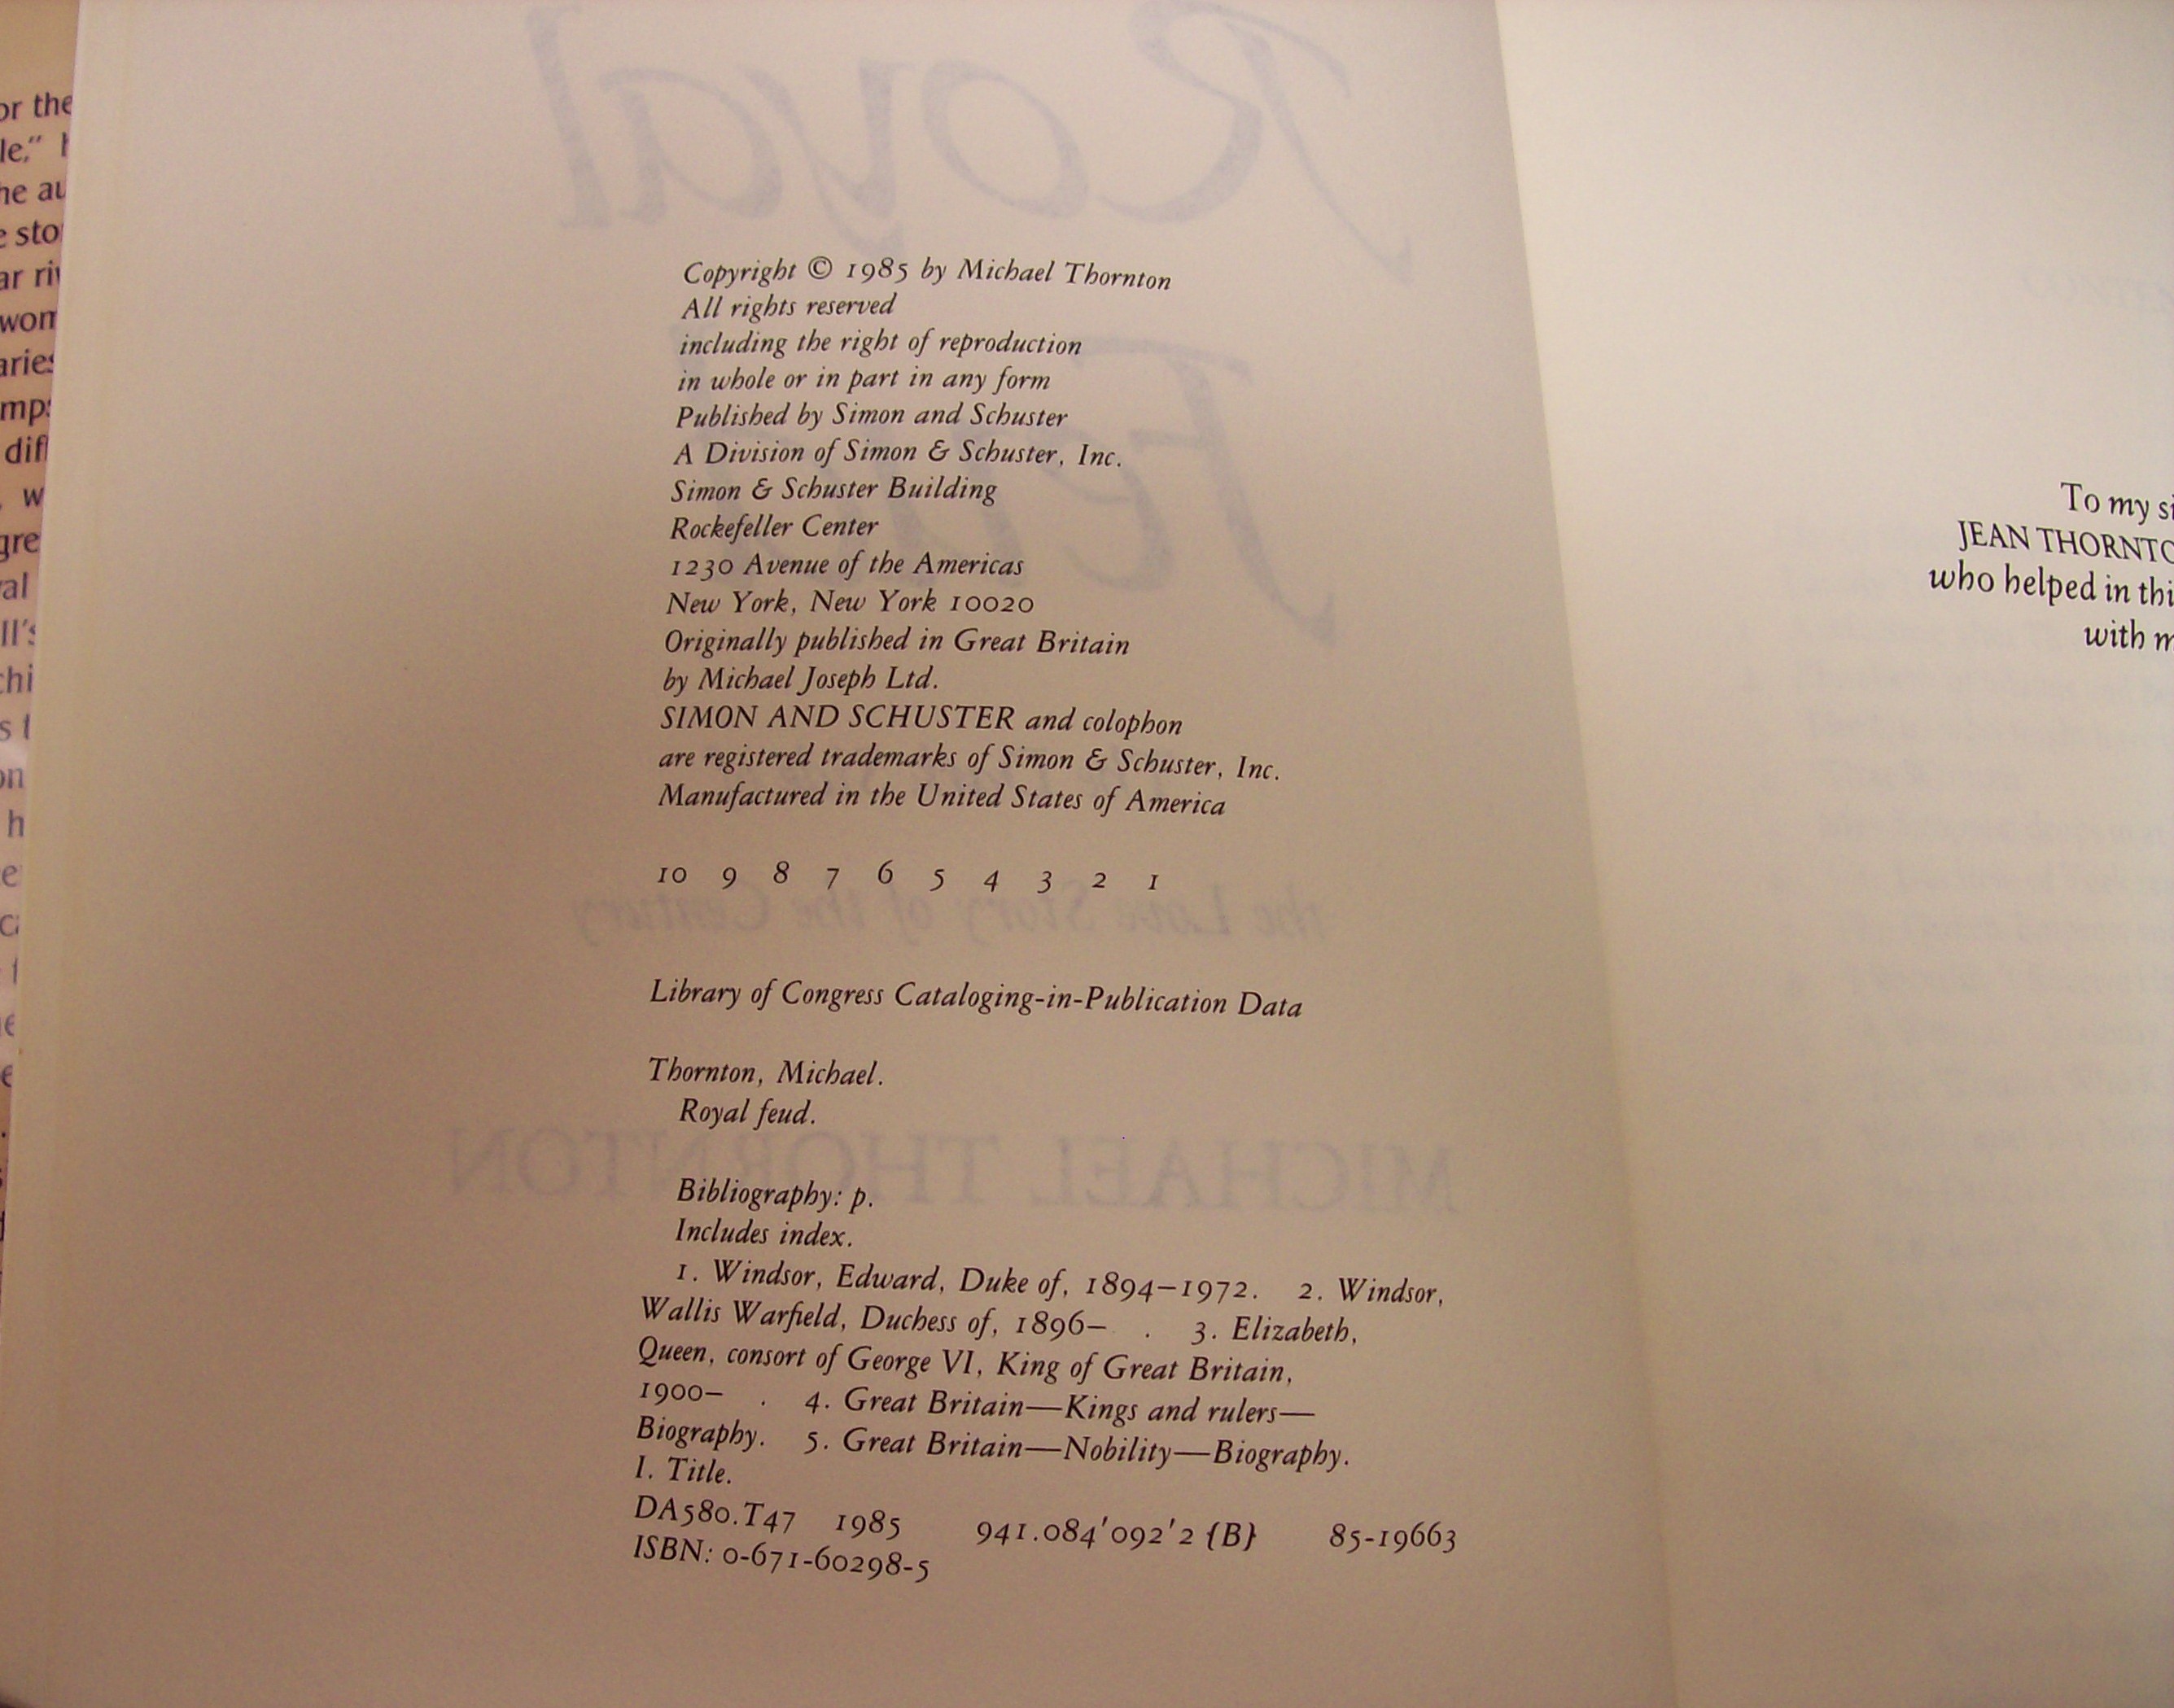 or the
le,"
he au
e sto
ar riv
wom
aries
mps
diff
, w
gre
al
ll's
chi
s t
on
h
e
ca
Royal
Feud
Copyright © 1985 by Michael Thornton
All rights reserved
including the right of reproduction
in whole or in part in any form
Published by Simon and Schuster
A Division of Simon & Schuster, Inc.
Simon & Schuster Building
Rockefeller Center
1230 Avenue of the Americas
New York, New York 10020
Originally published in Great Britain
by Michael Joseph Ltd.
SIMON AND SCHUSTER and colophon
are registered trademarks of Simon & Schuster, Inc.
Manufactured in the United States of America
10 9 8 7 6 5 4 3 2 1
the Love Story of the Century
Library of Congress Cataloging-in-Publication Data
Thornton, Michael.
Royal feud.
MICHAEL THORNTON
Bibliography: p.
Includes index.
1. Windsor, Edward, Duke of, 1894–1972. 2. Windsor,
Wallis Warfield, Duchess of, 1896– . 3. Elizabeth,
Queen, consort of George VI, King of Great Britain,
1900– . 4. Great Britain—Kings and rulers—
Biography. 5. Great Britain—Nobility—Biography.
I. Title.
DA580.T47 1985 941.084'092'2 {B} 85-19663
ISBN: 0-671-60298-5
To my si
JEAN THORNTO
who helped in thi
with m